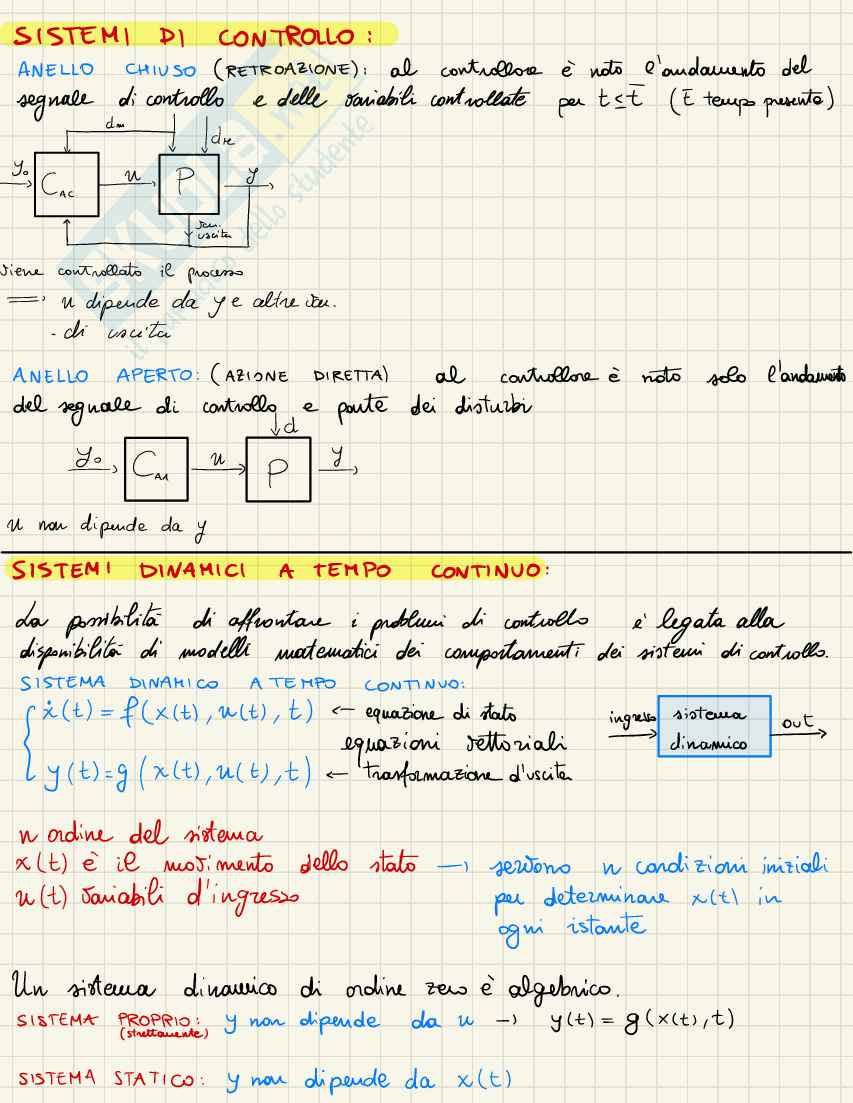 SISTEMI DI CONTROLLO:
ANELLO CHIUSO (RETROAZIONE): al controllore è noto l'andamento del
segnale di controllo e delle variabili controllate per t ≤ t̄ (t̄ tempo presente)
dm
dr
y₀
C_AC
u
P
y
var.
uscita
viene controllato il processo
⟹ u dipende da y e altre var.
- di uscita
ANELLO APERTO: (AZIONE DIRETTA) al controllore è noto solo l'andamento
del segnale di controllo e parte dei disturbi
d
y₀
C_AA
u
P
y
u non dipende da y
SISTEMI DINAMICI A TEMPO CONTINUO:
La possibilità di affrontare i problemi di controllo è legata alla
disponibilità di modelli matematici dei comportamenti dei sistemi di controllo.
SISTEMA DINAMICO A TEMPO CONTINUO:
ẋ(t) = f(x(t), u(t), t) ← equazione di stato
equazioni vettoriali
y(t) = g(x(t), u(t), t) ← trasformazione d'uscita
ingresso
sistema
dinamico
out
n ordine del sistema
x(t) è il movimento dello stato → servono n condizioni iniziali
u(t) variabili d'ingresso
per determinare x(t) in
ogni istante
Un sistema dinamico di ordine zero è algebrico.
SISTEMA PROPRIO: y non dipende da u → y(t) = g(x(t), t)
(strettamente)
SISTEMA STATICO: y non dipende da x(t)